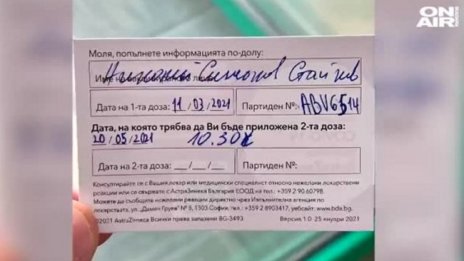 ON
AIR
Моля, попълнете информацията по-долу:
Дата на 1-та доза: 11/03/2021
Партиден №: ABV6514
Дата, на която трябва да Ви бъде приложена 2-та доза:
20/05/2021 10.30
Дата на 2-та доза: __/__/__
Партиден №:
Консултирайте се с Вашия лекар или медицински специалист относно нежелани лекарствени
реакции или се свържете с АстраЗенека България ЕООД на тел.: +359 2 90.60798.
Можете да съобщите нежелани реакции директно чрез Изпълнителна агенция по
лекарствата, ул. "Дамян Груев" 8, 1303 София, тел.: +359 2 8903417, уебсайт: www.bda.bg.
©2021 AstraZeneca Всички права запазени BG-3493
Версия 1.0 25 януари 2021